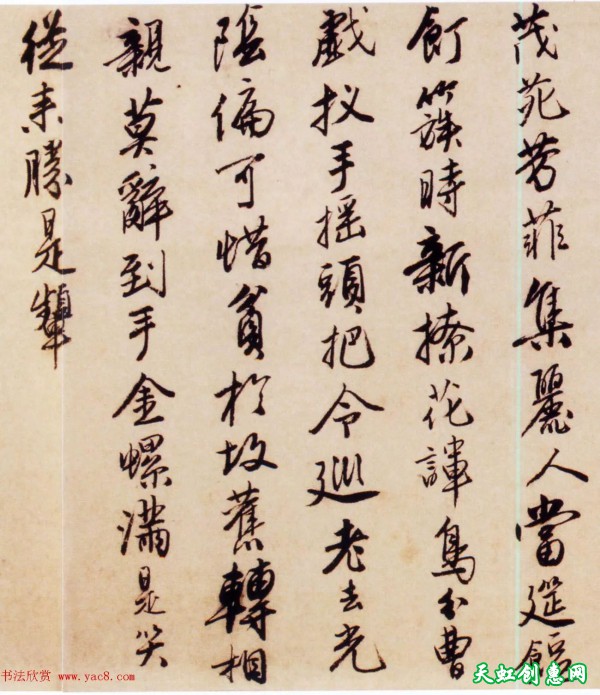 茂苑芳菲集麗人當筵餖
飣簇時新撩花諢鳥分曹
戲扠手摇頭把令巡老去光
陰偏可惜貧於故舊轉相
親莫辭到手金螺滿是笑
從来勝是顰
书法欣赏 www.yac8.com
天虹创惠网